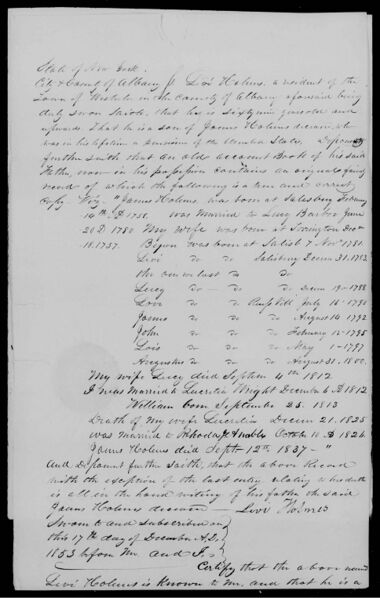 State of New York
City & County of Albany Levi Holmes, a resident of the
Town of in the County of Albany aforesaid being
duly sworn saith, that he is Sixty nine years old and
upwards That he is a son of James Holmes deceased, who
was in his lifetime a pensioner of the United States, Deponent
further saith that an old account Book of his said
Father, now in his possession contains an original family
record of which the following is a true and correct
Copy Viz "James Holmes, was born at Salisbury February
14th A D 1758. was Married to Lucy Barbor June
20 D 1780 My wife was born at Torrington Decr
18. 1757. was born at Salisb'y Novr 1781.
Levi do Salisbury Decem 31. 1783
the one we lost do do
Lucy do do Decem 19 - 1788
do do July 16 - 1790
James do do August 14 1792
John do do February 12 - 1795
Lois do do May 1 - 1797
Augustus do do August 31. 1800.
My wife Lucy died Septem 4th 1812
I was Married to Lucretia Wright December 6 D 1812
William born September 25. 1813
Death of my wife Lucretia Decem 21. 1825
was married to Rhoda October 10 D 1826
James Holmes died Sept 12th 1837 - "
And Deponent further saith, that the above Record
with the exception of the last entry relating to his death
is all in the hand writing of his father the said
James Holmes deceased - Levi Holmes
Sworn to and Subscribed on
this 17th day of December A.D.
1853 before me and I
Certify that the above named
Levi Holmes is known to me, and that he is a